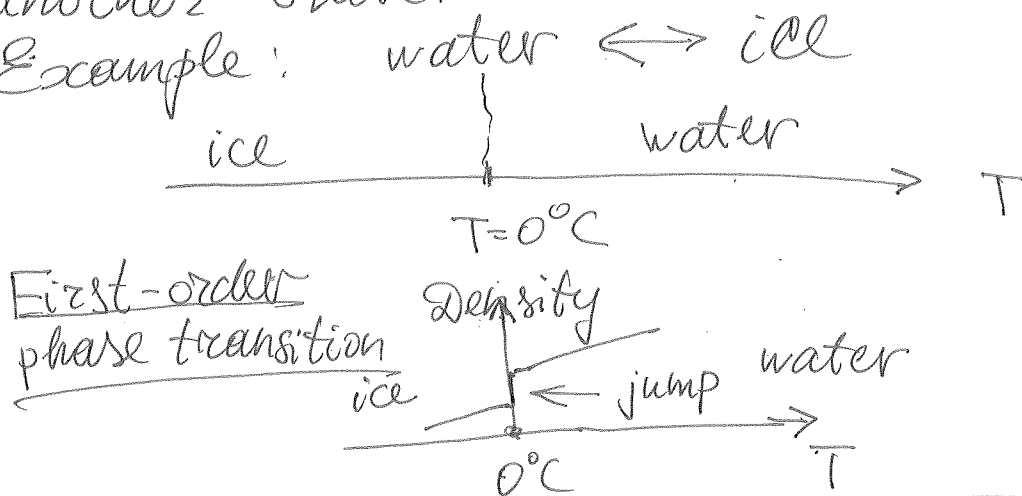 Example: water ↔ ice
ice water
T
T=0°C
First-order
phase transition
Density
ice
jump
water
T
0°C